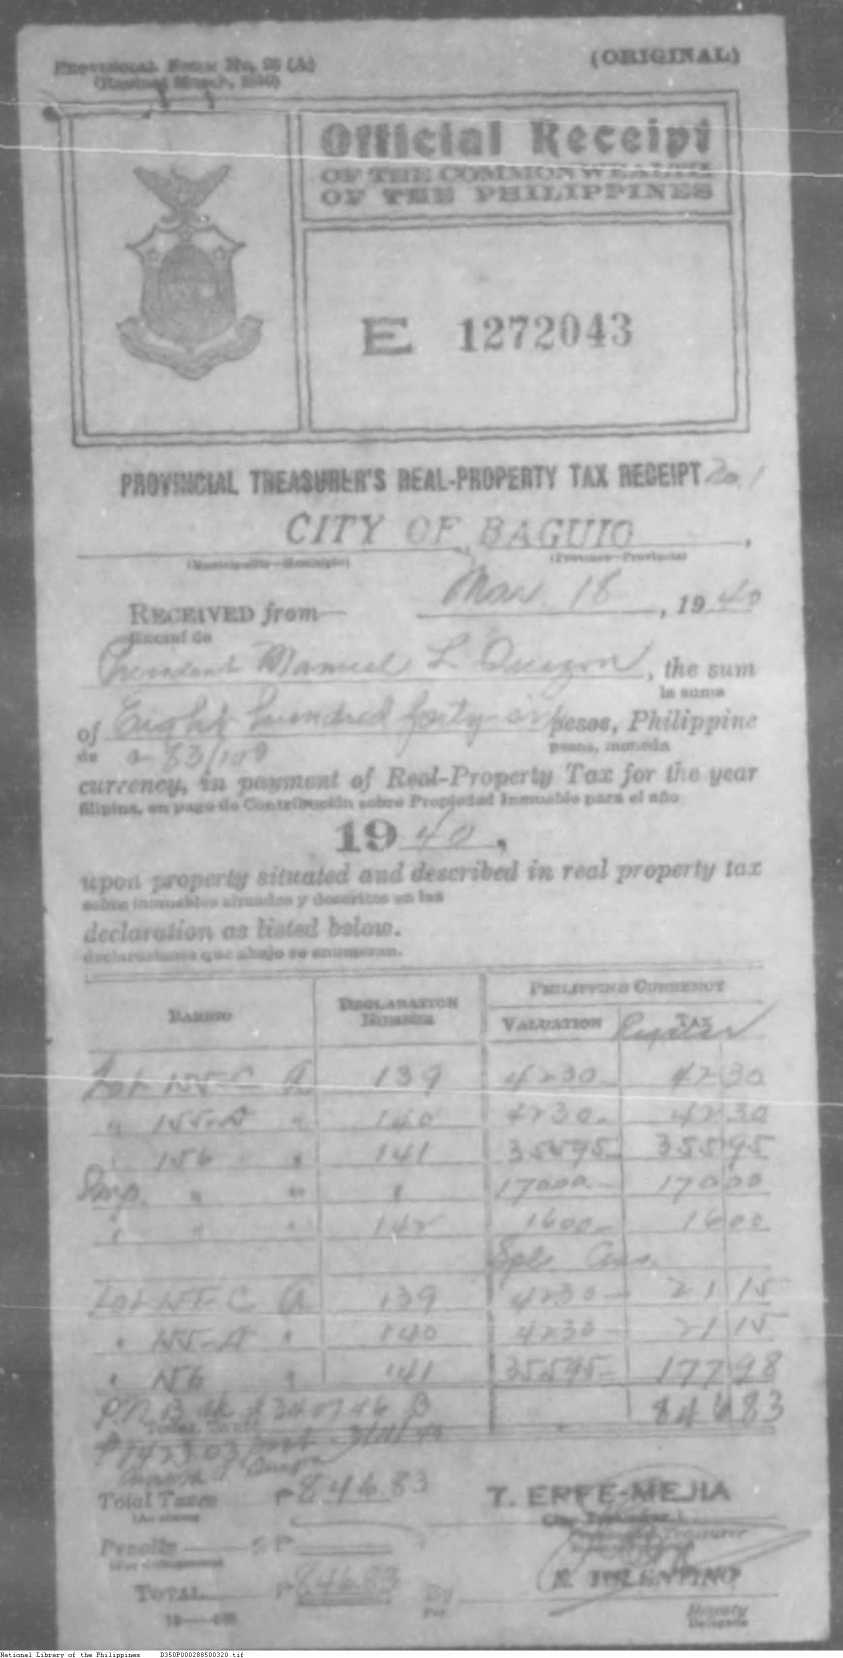 Provincial Form No. 25 (A)
(Revised March, 1940)
(ORIGINAL)
Official Receipt
OF THE COMMONWEALTH
OF THE PHILIPPINES
E 1272043
PROVINCIAL TREASURER'S REAL-PROPERTY TAX RECEIPT No. 1
CITY OF BAGUIO,
(Municipality—Municipio) (Province—Provincia)
Mar. 18, 1940
RECEIVED from
Recibí de
President Manuel L Quezon, the sum
la suma
of Eight hundred forty-six pesos, Philippine
de & 83/100 pesos, moneda
currency, in payment of Real-Property Tax for the year
filipina, en pago de Contribución sobre Propiedad Inmueble para el año
1940,
upon property situated and described in real property tax
sobre inmuebles situados y descritos en las
declaration as listed below.
declaraciones que abajo se enumeran.
PHILIPPINE CURRENCY
BARRIO DECLARATION NUMBER VALUATION TAX
Lot 155-C A 139 4230- 42 30
" 155-A " 140 4230- 42 30
" 156 " 141 35595- 355 95
Imp. " " " 17000- 170 00
" " " 142 1600- 16 00
Lot 155-C A 139 4230- 21 15
" 155-A " 140 4230- 21 15
" 156 " 141 35595- 177 98
846 83
Total Taxes ₱ 846.83
Penalty
TOTAL ₱ 846.83
T. ERFE-MEJIA
Provincial Treasurer
By
Por
R. TOLENTINO
Deputy
Delegado
National Library of the Philippines D350P000288500320.tif